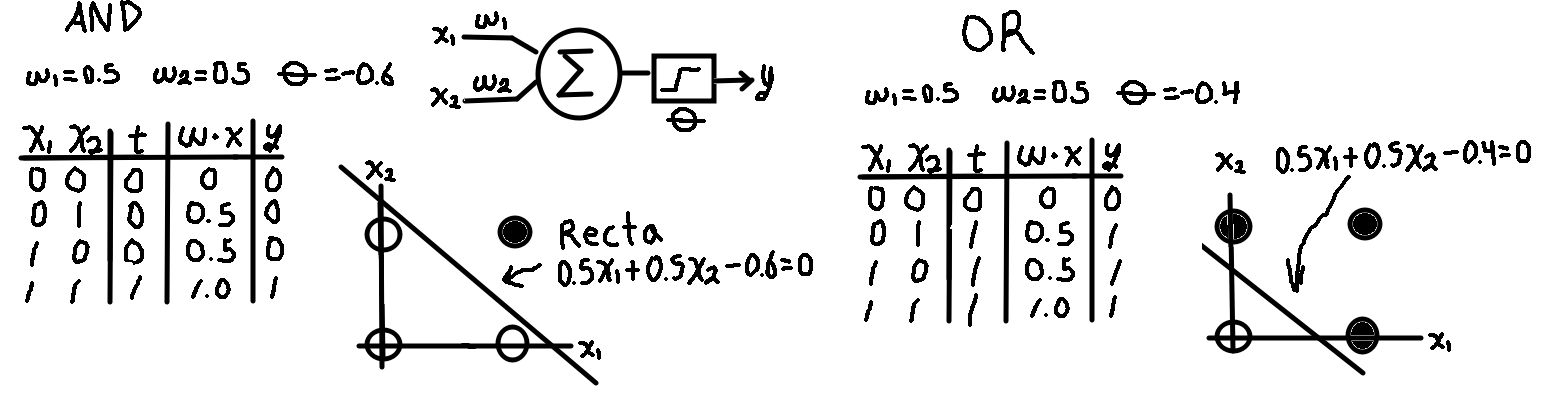 AND
ω₁=0.5 ω₂=0.5 θ=-0.6
x₁ x₂ t ω·x y
0 0 0 0 0
0 1 0 0.5 0
1 0 0 0.5 0
1 1 1 1.0 1
x₁ ω₁
x₂ ω₂
Σ
θ
y
x₂
Recta
0.5x₁+0.5x₂-0.6=0
x₁
OR
ω₁=0.5 ω₂=0.5 θ=-0.4
x₁ x₂ t ω·x y
0 0 0 0 0
0 1 1 0.5 1
1 0 1 0.5 1
1 1 1 1.0 1
x₂ 0.5x₁+0.5x₂-0.4=0
x₁